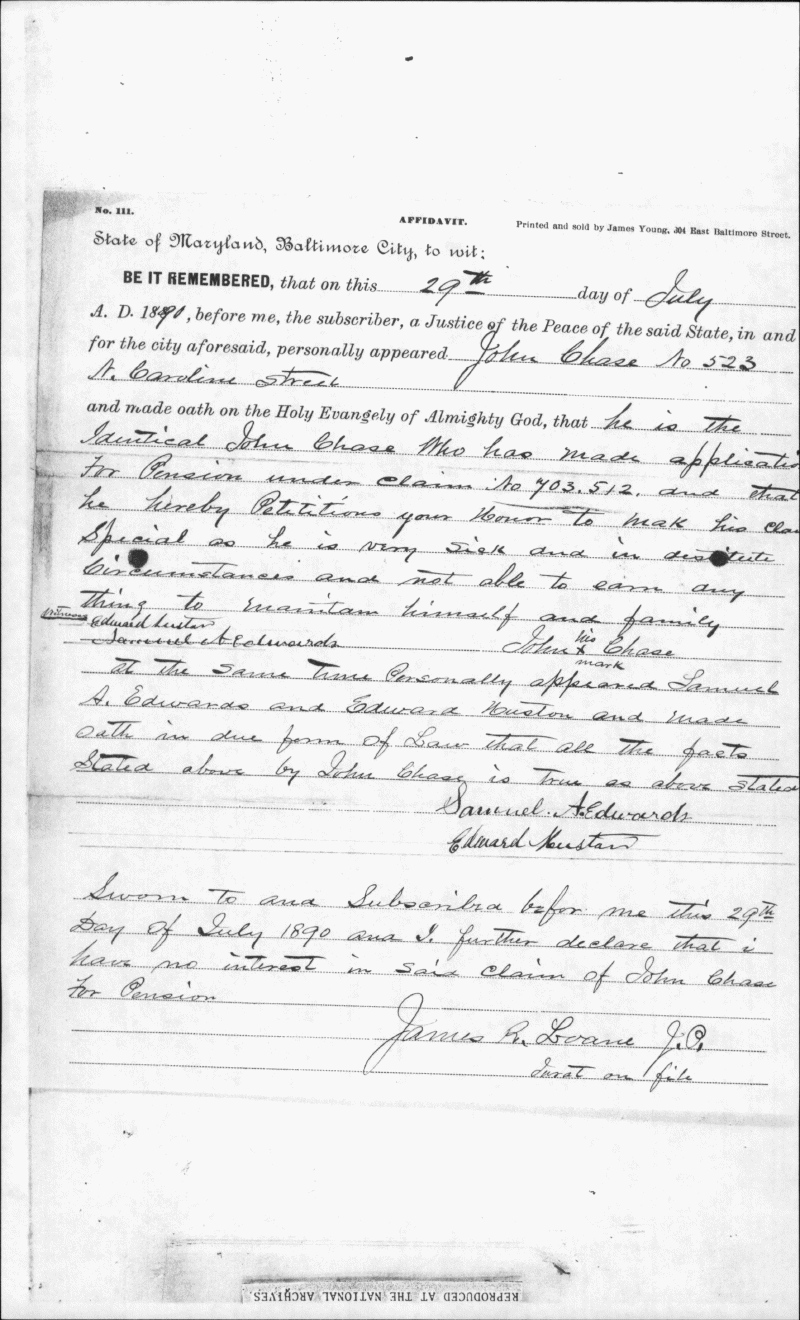 No. 111.
AFFIDAVIT.
Printed and sold by James Young, 304 East Baltimore Street.
State of Maryland, Baltimore City, to wit:
BE IT REMEMBERED, that on this 29th day of July
A. D. 1890, before me, the subscriber, a Justice of the Peace of the said State, in and
for the city aforesaid, personally appeared John Chase No 523
N. Caroline Street
and made oath on the Holy Evangely of Almighty God, that he is the
Identical John Chase Who has made applicatio
For Pension under claim No 703.512. and that
he hereby Petitions your Honor to mak his clai
Special as he is very Sick and in destitute
Circumstances and not able to earn any
thing to maintain himself and family
Witness Edward Huston
Samuel A Edwards
John his x mark Chase
at the same time Personally appeared Samuel
A. Edwards and Edward Huston and made
oath in due form of Law that all the facts
Stated above by John Chase is true as above stated
Samuel. A. Edwards
Edward Huston
Sworn to and Subscribed befor me this 29th
Day of July 1890 and I. further declare that i
have no interest in said claim of John Chase
For Pension
James R. Loane J.P.
Jurat on file
REPRODUCED AT THE NATIONAL ARCHIVES